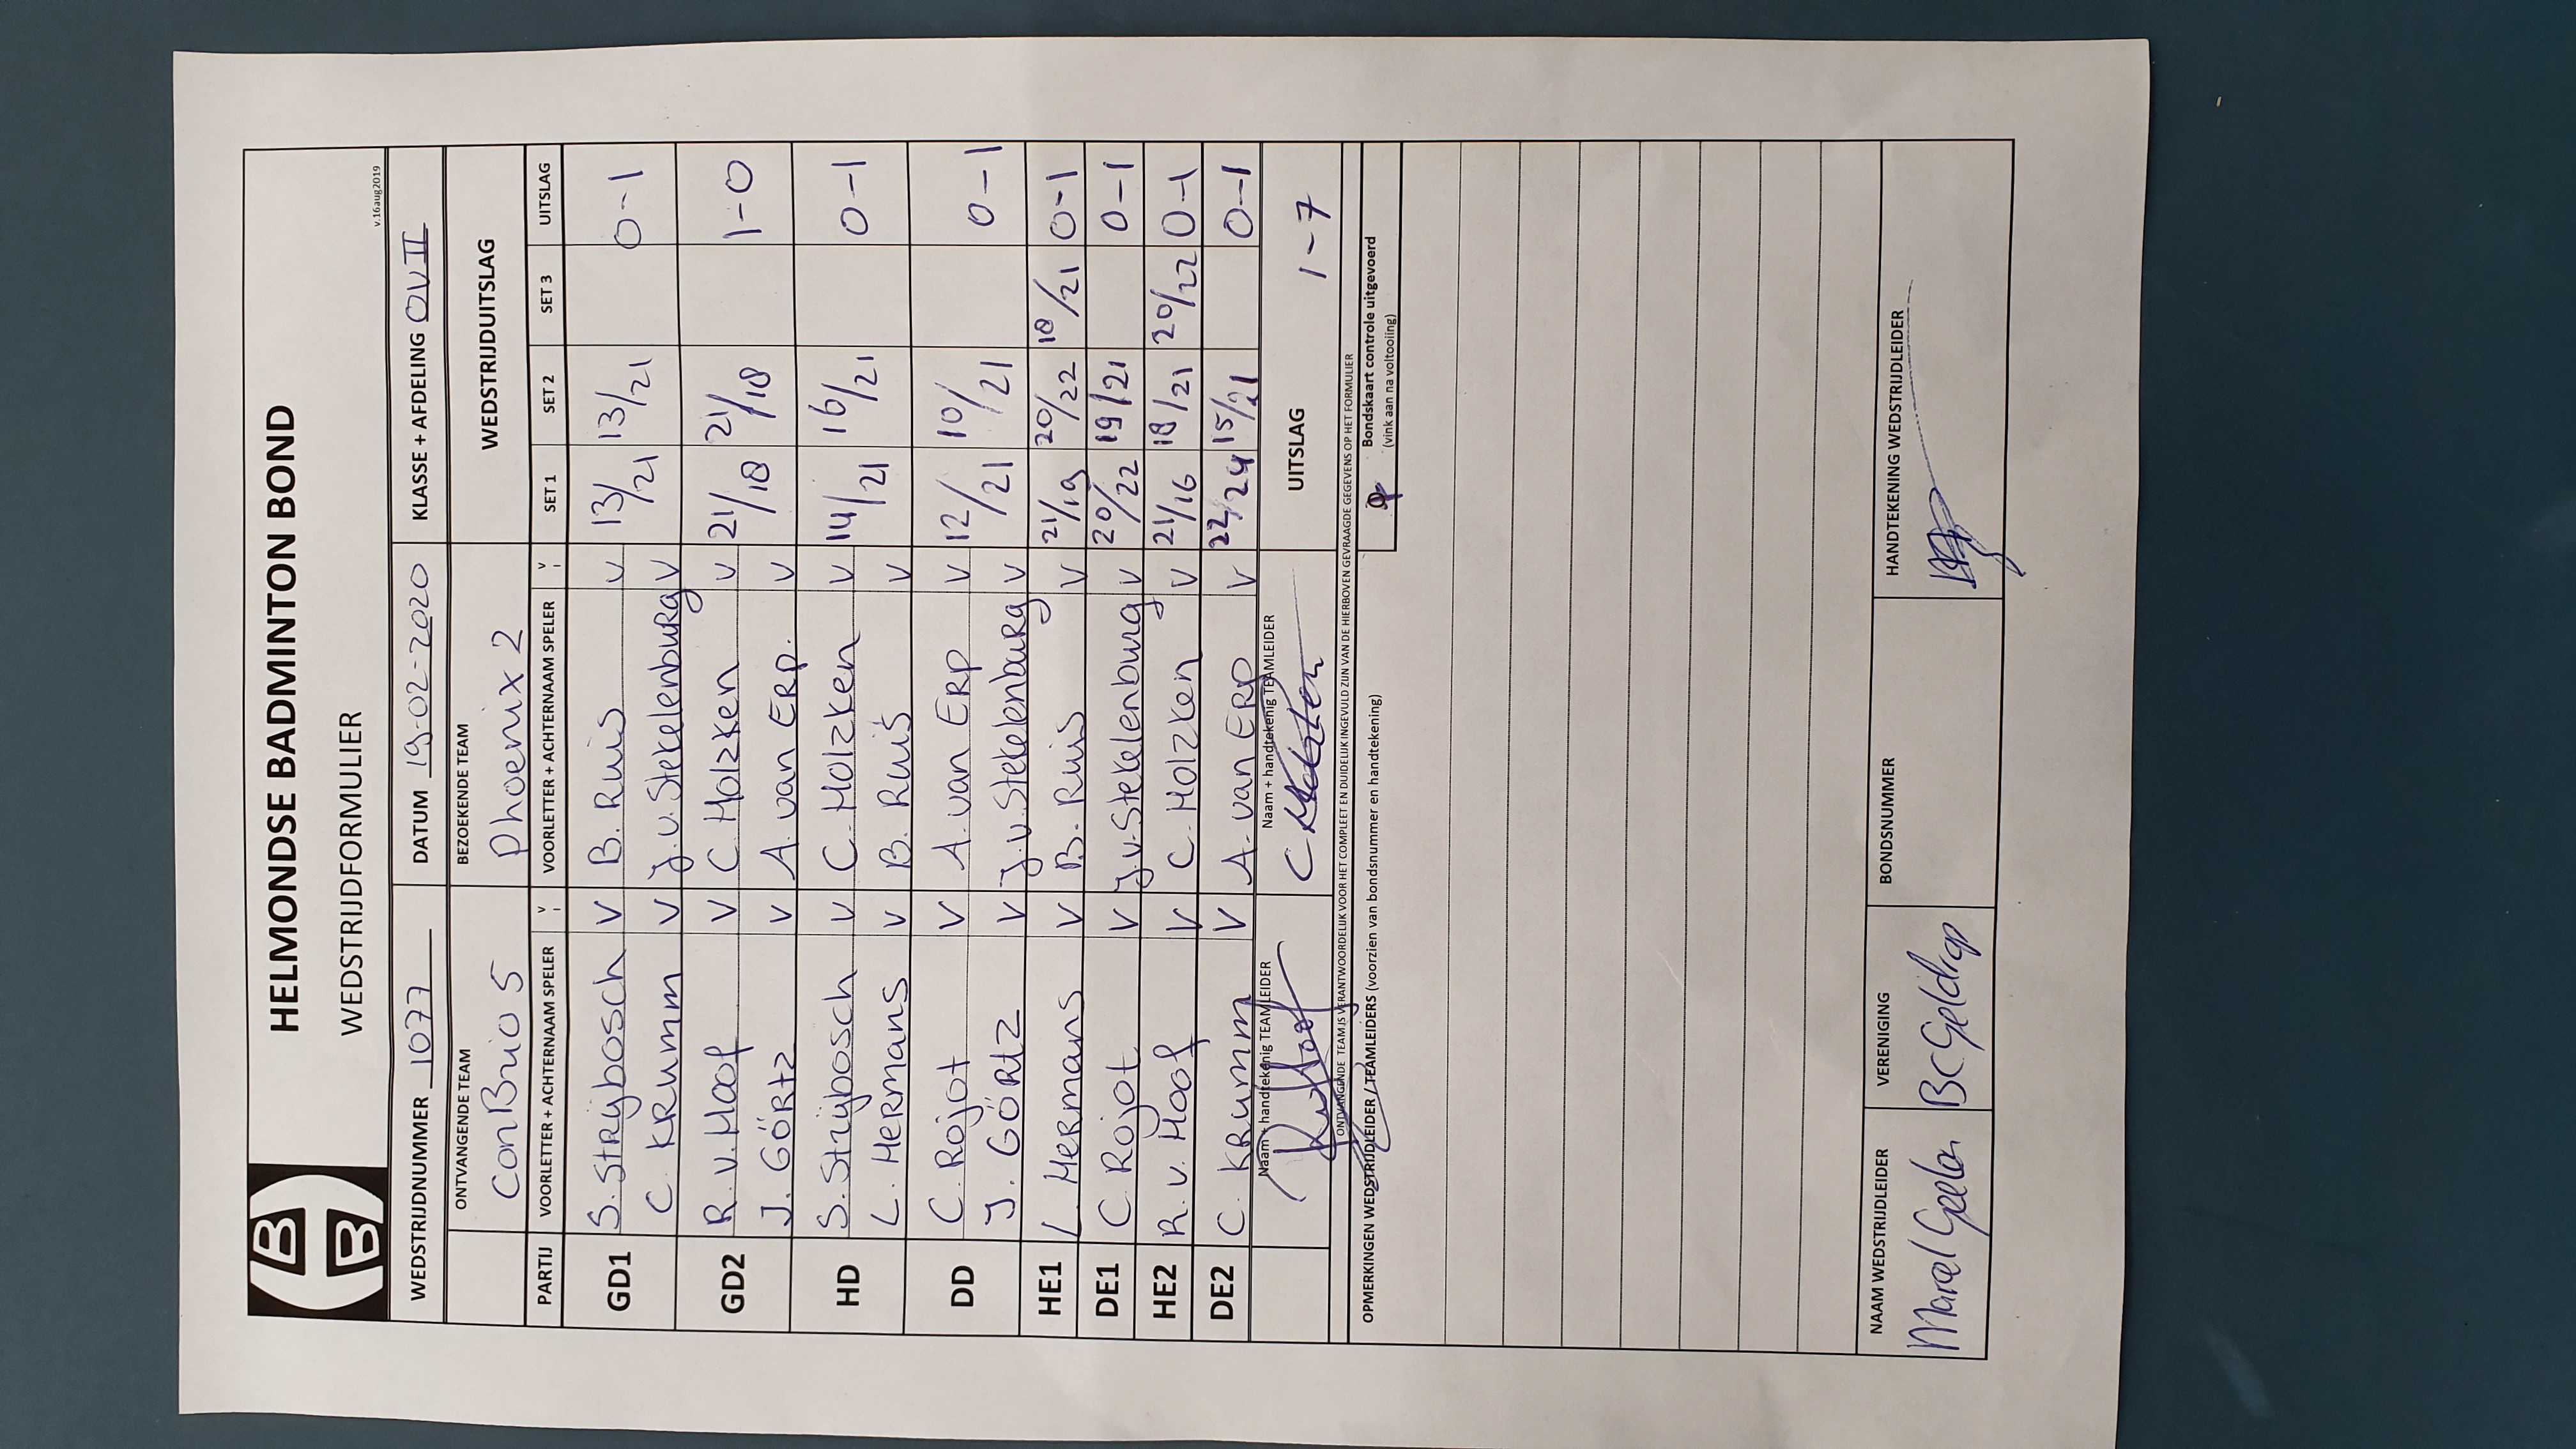 HELMONDSE BADMINTON BOND
WEDSTRIJDFORMULIER
v.16aug2019
WEDSTRIJDNUMMER 1077 DATUM 19-02-2020 KLASSE + AFDELING OV II
ONTVANGENDE TEAM BEZOEKENDE TEAM WEDSTRIJDUITSLAG
ConBrio 5 Phoenix 2
PARTIJ VOORLETTER + ACHTERNAAM SPELER V VOORLETTER + ACHTERNAAM SPELER V SET 1 SET 2 SET 3 UITSLAG
GD1 S. Strijbosch V B. Ruis V 13/21 13/21 0-1
C. Krumm V J. v. Stekelenburg V
GD2 R. v. Hoof V C. Holzken V 21/18 21/18 1-0
J. Görtz V A. van Erp. V
HD S. Strijbosch V C. Holzken V 14/21 16/21 0-1
L. Hermans V B. Ruis V
DD C. Rojot V A. van Erp V 12/21 10/21 0-1
J. Görtz V J. v. Stekelenburg V
HE1 L. Hermans V B. Ruis V 21/19 20/22 18/21 0-1
DE1 C. Rojot V J. v. Stekelenburg V 20/22 19/21 0-1
HE2 R. v. Hoof V C. Holzken V 21/16 18/21 20/22 0-1
DE2 C. Krumm V A. van Erp V 22/24 15/21 0-1
Naam + handtekenig TEAMLEIDER Naam + handtekenig TEAMLEIDER UITSLAG 1-7
ONTVANGENDE TEAM IS VERANTWOORDELIJK VOOR HET COMPLEET EN DUIDELIJK INGEVULD ZIJN VAN DE HIERBOVEN GEVRAAGDE GEGEVENS OP HET FORMULIER
OPMERKINGEN WEDSTRIJDLEIDER / TEAMLEIDERS (voorzien van bondsnummer en handtekening) Bondskaart controle uitgevoerd
(vink aan na voltooiing)
NAAM WEDSTRIJDLEIDER VERENIGING BONDSNUMMER HANDTEKENING WEDSTRIJDLEIDER
Marcel BC Geldrop